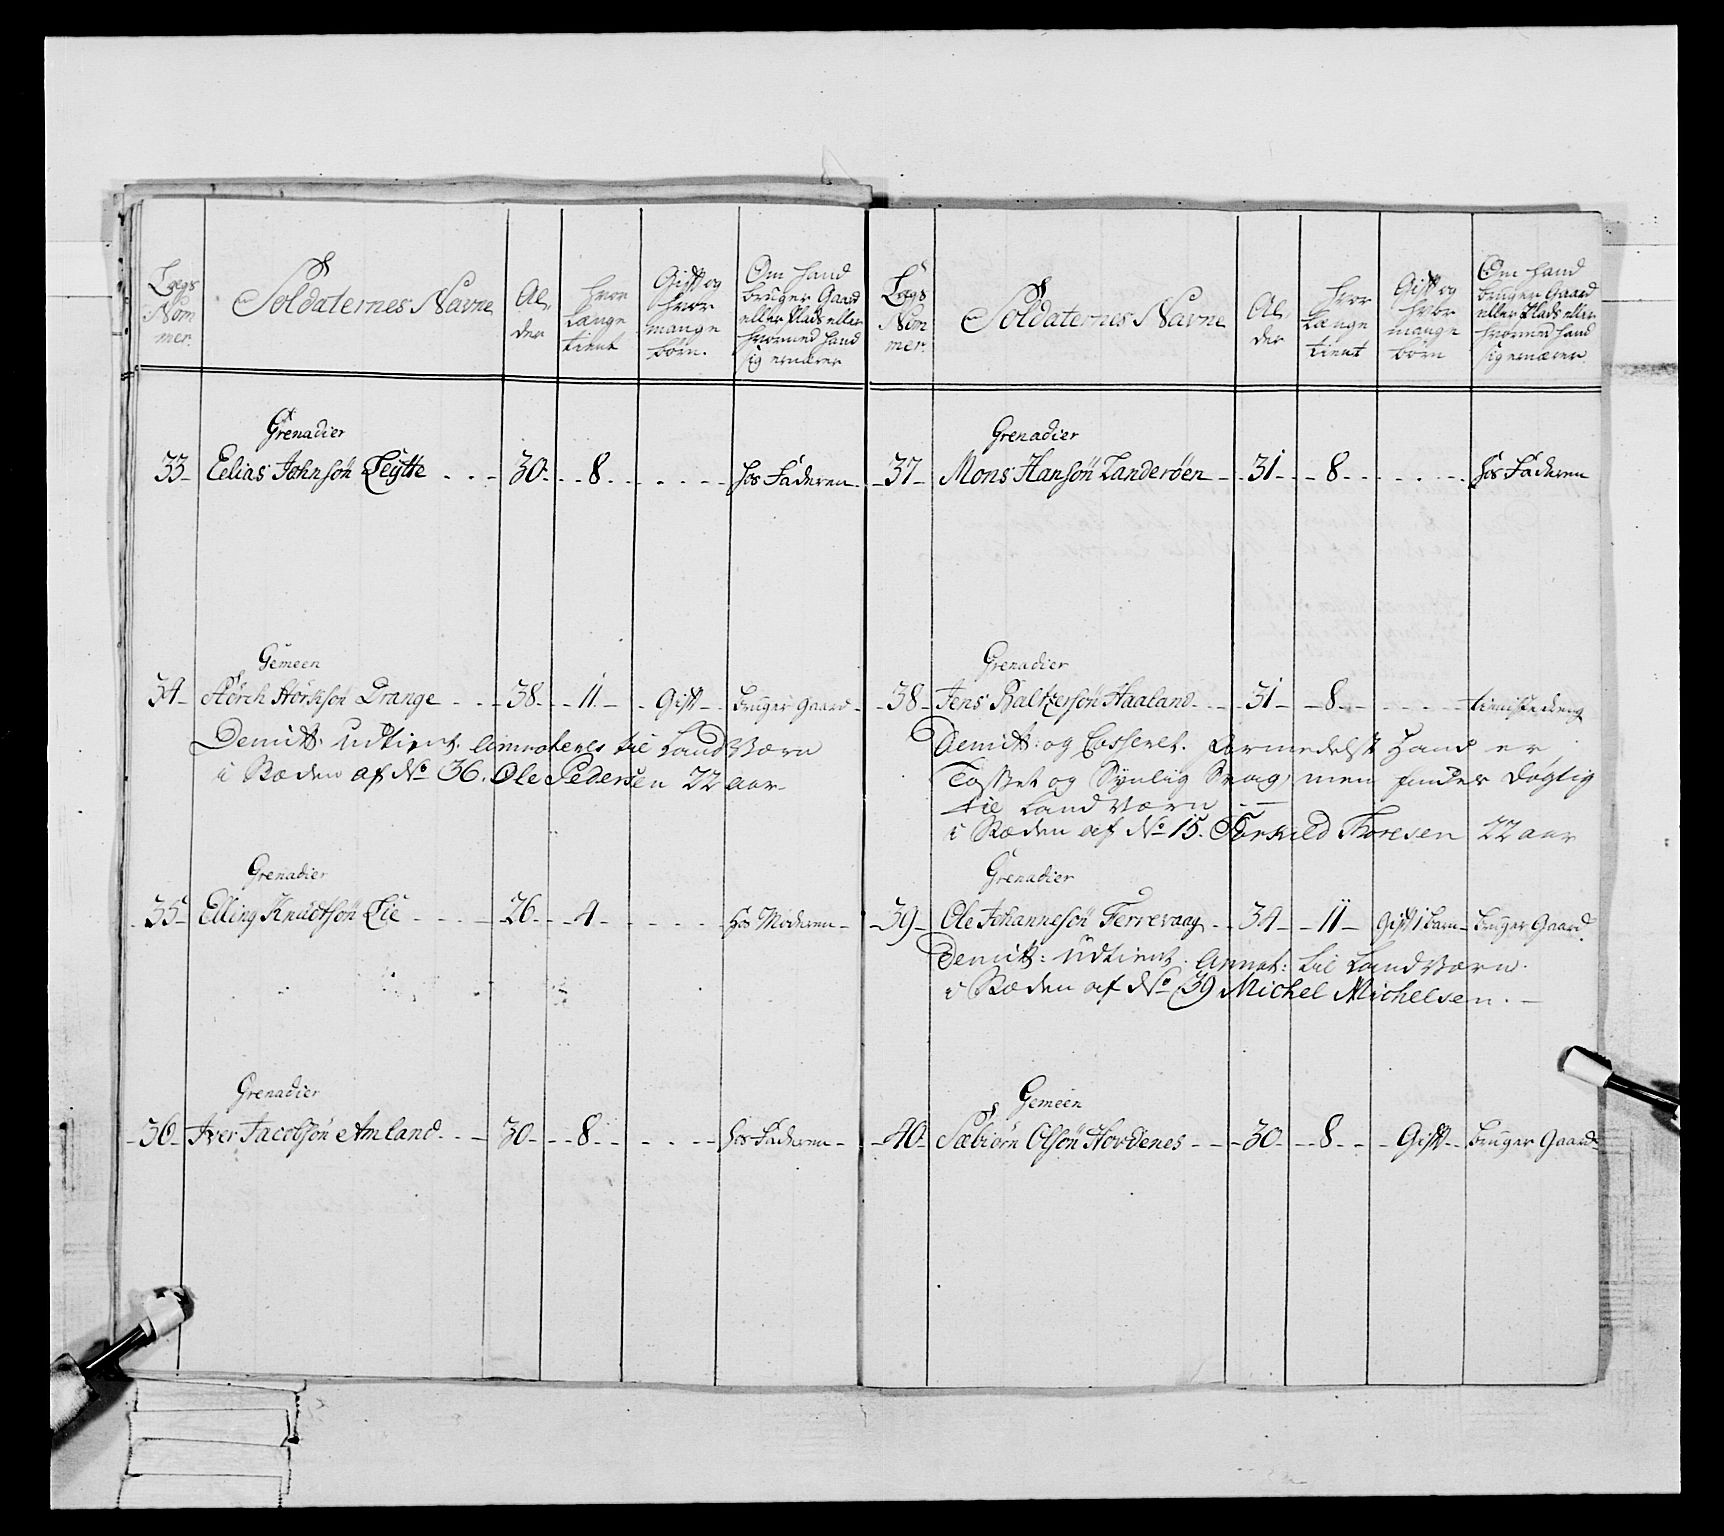 Lægs Nom mer.
Soldaternes Navne
Al, der
hvor Længe tient
Gift og hvor mange børn.
Om hand bruger Gaard eller Plads eller hvormed hand sig ernærer
Grenadier
33 Eelias Johnsön Teÿtte 30 8 hos Faderen
Gemeen
34 Störch Störchsön Drange 38 11 Gift bruger Gaard
Demitt: udtient. til Land Værn
i Stæden af No 36. Ole Pedersen 22 aar
Grenadier
35 Elling Knudtsön Lie 26 4 hos Moderen
Grenadier
36 Iver Jacobsön Amland 30 8 hos Faderen
Lægs Nom mer.
Soldaternes Navne
Al, der
hvor Længe tient
Gift og hvor mange börn
Om hand bruger Gaard eller Plads eller hvormed hand sig ernærer
Grenadier
37 Mons Hansön Landeröen 31 8 hos Faderen
Grenadier
38 Jens Baltzersön Haaland 31 8 tienistedreng
Demitt: og Casseret. formedelst Hand er
og Synlig Svag, men findes døgtig
til Land Værn
i Stæden af No 15. Torkild Thoresen 22 aar
Grenadier
39 Ole Johannesön Ferrevaag 34 11 Gift 1 barn bruger Gaard
Demitt: udtient: Annot: til Land Værn.
i Stæden af No 39 Michel Michelsen.
Gemeen
40 Sæbiörn Olsön Nordenes 30 8 Gift bruger Gaard